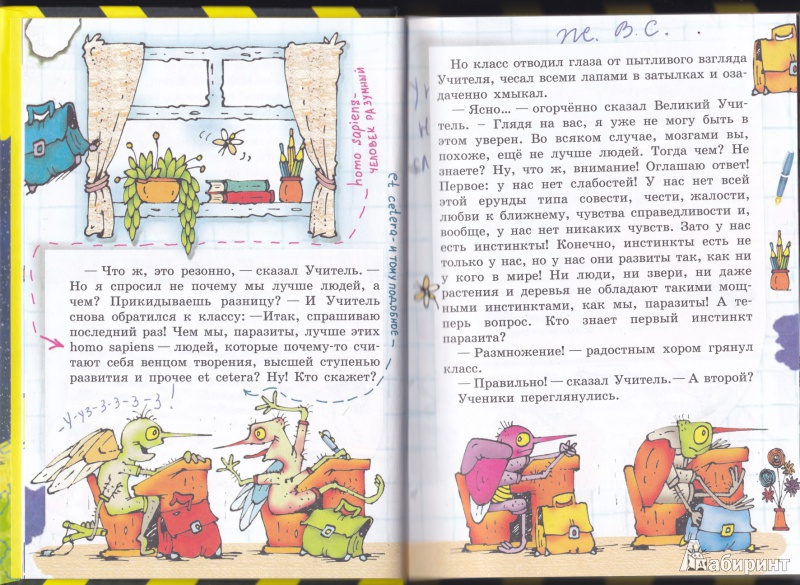 homo sapiens-
ЧЕЛОВЕК РАЗУМНЫЙ
et cetera - и тому подобное -
— Что ж, это резонно, — сказал Учитель. —
Но я спросил не почему мы лучше людей, а
чем? Прикидываешь разницу? — И Учитель
снова обратился к классу: —Итак, спрашиваю
последний раз! Чем мы, паразиты, лучше этих
homo sapiens — людей, которые почему-то счи-
тают себя венцом творения, высшей ступенью
развития и прочее et cetera? Ну! Кто скажет?
-У-уз-з-з-з-з!
Ж. В. С.
Но класс отводил глаза от пытливого взгляда
Учителя, чесал всеми лапами в затылках и оза-
даченно хмыкал.
— Ясно... — огорчённо сказал Великий Учи-
тель. – Глядя на вас, я уже не могу быть в
этом уверен. Во всяком случае, мозгами вы,
похоже, ещё не лучше людей. Тогда чем? Не
знаете? Ну, что ж, внимание! Оглашаю ответ!
Первое: у нас нет слабостей! У нас нет всей
этой ерунды типа совести, чести, жалости,
любви к ближнему, чувства справедливости и,
вообще, у нас нет никаких чувств. Зато у нас
есть инстинкты! Конечно, инстинкты есть не
только у нас, но у нас они развиты так, как ни
у кого в мире! Ни люди, ни звери, ни даже
растения и деревья не обладают такими мощ-
ными инстинктами, как мы, паразиты! А те-
перь вопрос. Кто знает первый инстинкт
паразита?
— Размножение! — радостным хором грянул
класс.
— Правильно! — сказал Учитель.— А второй?
Ученики переглянулись.
Лабиринт